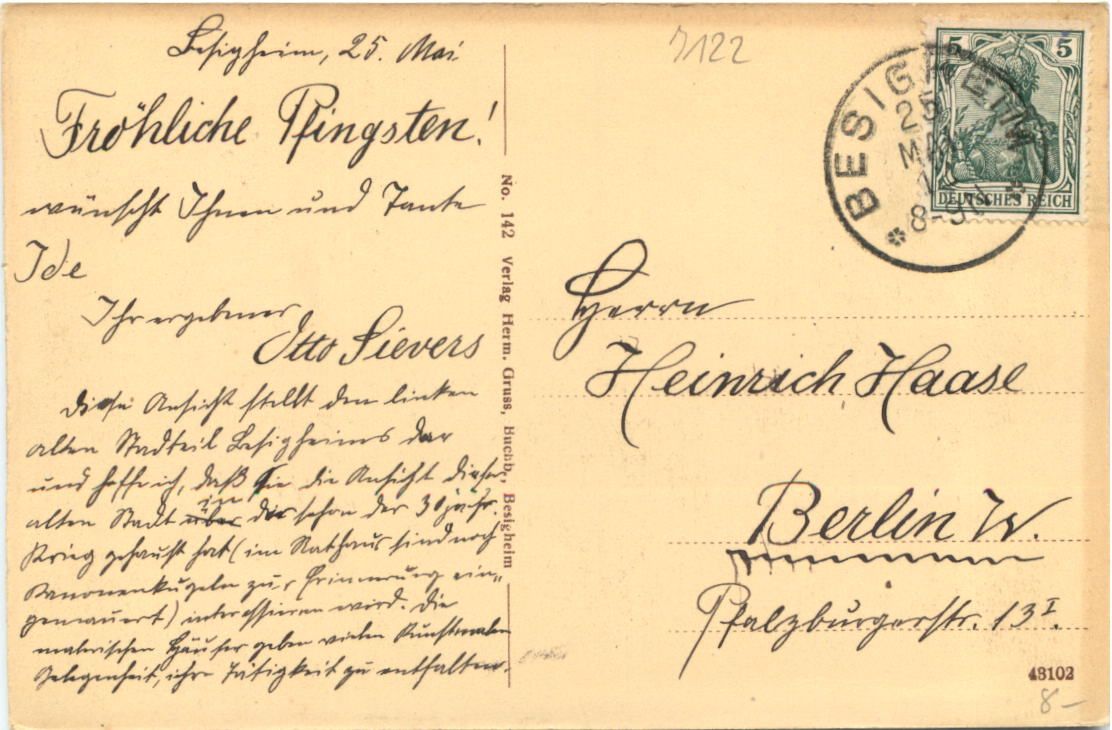 Besigheim, 25. Mai.
Fröhliche Pfingsten!
wünscht Ihnen und Tante
Ide
Ihr ergebener
Otto Sievers
Diese Ansicht stellt den linken
alten Stadteil Besigheims dar
und hoffe ich, daß Sie die Ansicht dieser
alten Stadt über in der schon der 30jähr.
Krieg gehaust hat (im Rathaus sind noch
Kanonenkugeln zur Erinnerung ein„
gemauert) interessieren wird. Die
malerischen Häuser geben vielen Kunstmalern
Gelegenheit, ihre Tätigkeit zu entfalten.
No. 142 Verlag Herm. Gruss, Buchb., Besigheim
7122
BESIGHEIM
25
MAI
8-9N
5 5
DEUTSCHES REICH
Herrn
Heinrich Haase
Berlin W.
Pfalzburgerstr. 13 I.
43102
8-